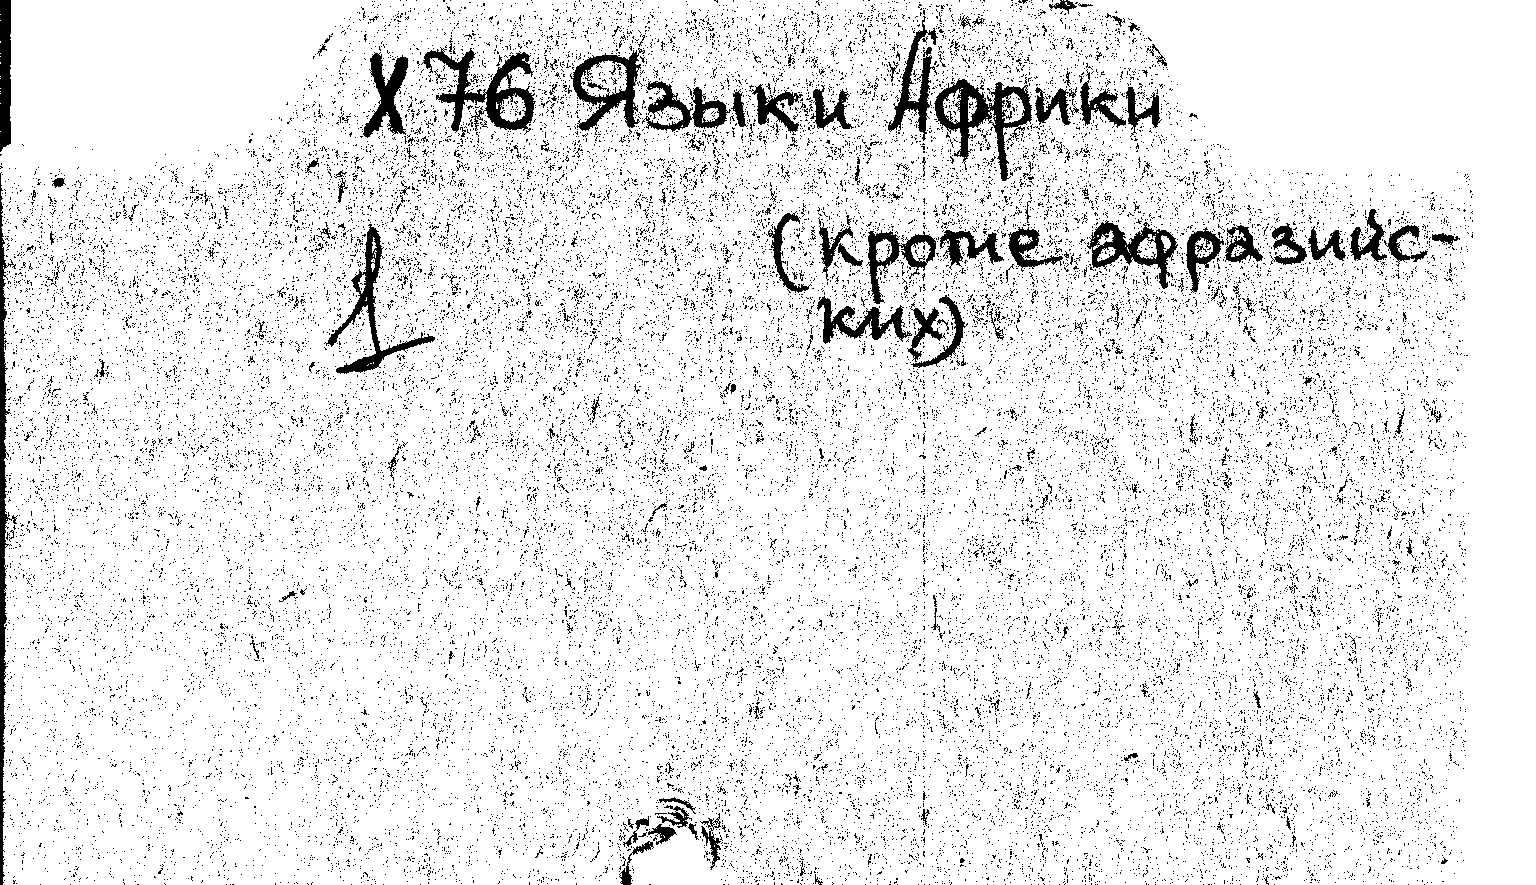 X 76 Языки Африки
1
(кроме афразийс-
ких)